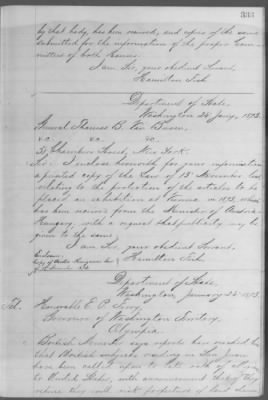 335
by that body, has been received, and copies of the same
submitted for the information of the proper Com-
mittees of both Houses.
I am Sir, your obedient Servant,
Hamilton Fish
Department of State,
Washington 24 Jany. 1873.
General Thomas B. Van Buren,
&c. &c. &c.
51 Chambers Street, New York.
Sir: I enclose herewith for your information
a printed copy of the Law of 13th November last
relating to the protection of the articles to be
placed on exhibition at Vienna in 1873, which
has been received from the Minister of Austria-
Hungary, with a request that publicity may be
given to the same.
I am Sir, your obedient Servant,
Hamilton Fish
Enclosure:
Copy of Austro Hungarian Law
Department of State,
Washington, January 25th 1873.
Tel.
Honorable E. P. Ferry
Governor of Washington Territory,
Olympia.
British Minister says reports have reached him
that British subjects residing on San Juan
have been called upon to take oath of allegiance
to United States, with announcement that if they
refuse they will risk forfeiture of land claims